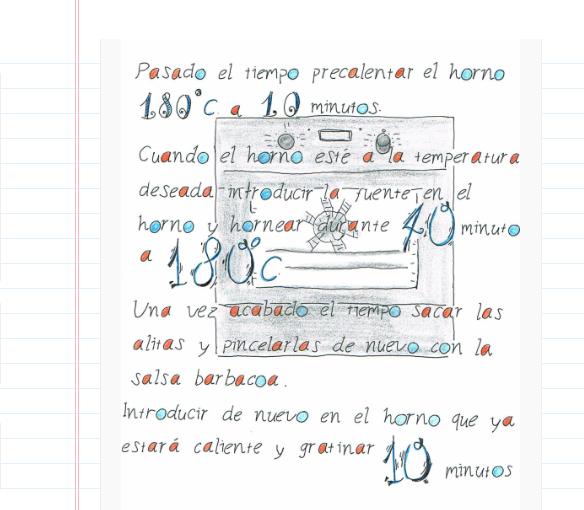 Pasado el tiempo precalentar el horno
180°C a 10 minutos.
Cuando el horno esté a la temperatura
deseada introducir la fuente en el
horno y hornear durante 40 minuto
a 180°C
Una vez acabado el tiempo sacar las
alitas y pincelarlas de nuevo con la
salsa barbacoa.
Introducir de nuevo en el horno que ya
estará caliente y gratinar 10 minutos